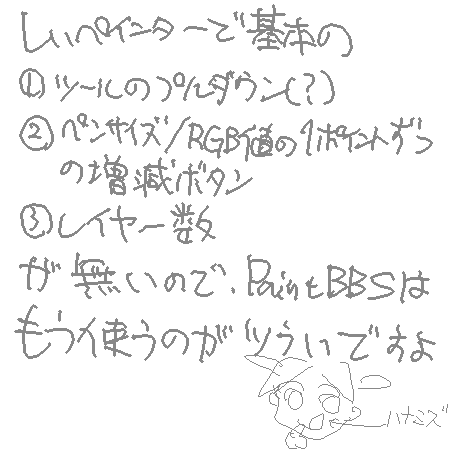 しぃペインターで基本の
①ツールのプルダウン(?)
②ペンサイズ/RGB値の1ポイントずつ
の増減ボタン
③レイヤー数
が無いので、PaintBBSは
もう使うのがツらいですよ
ハナミズ